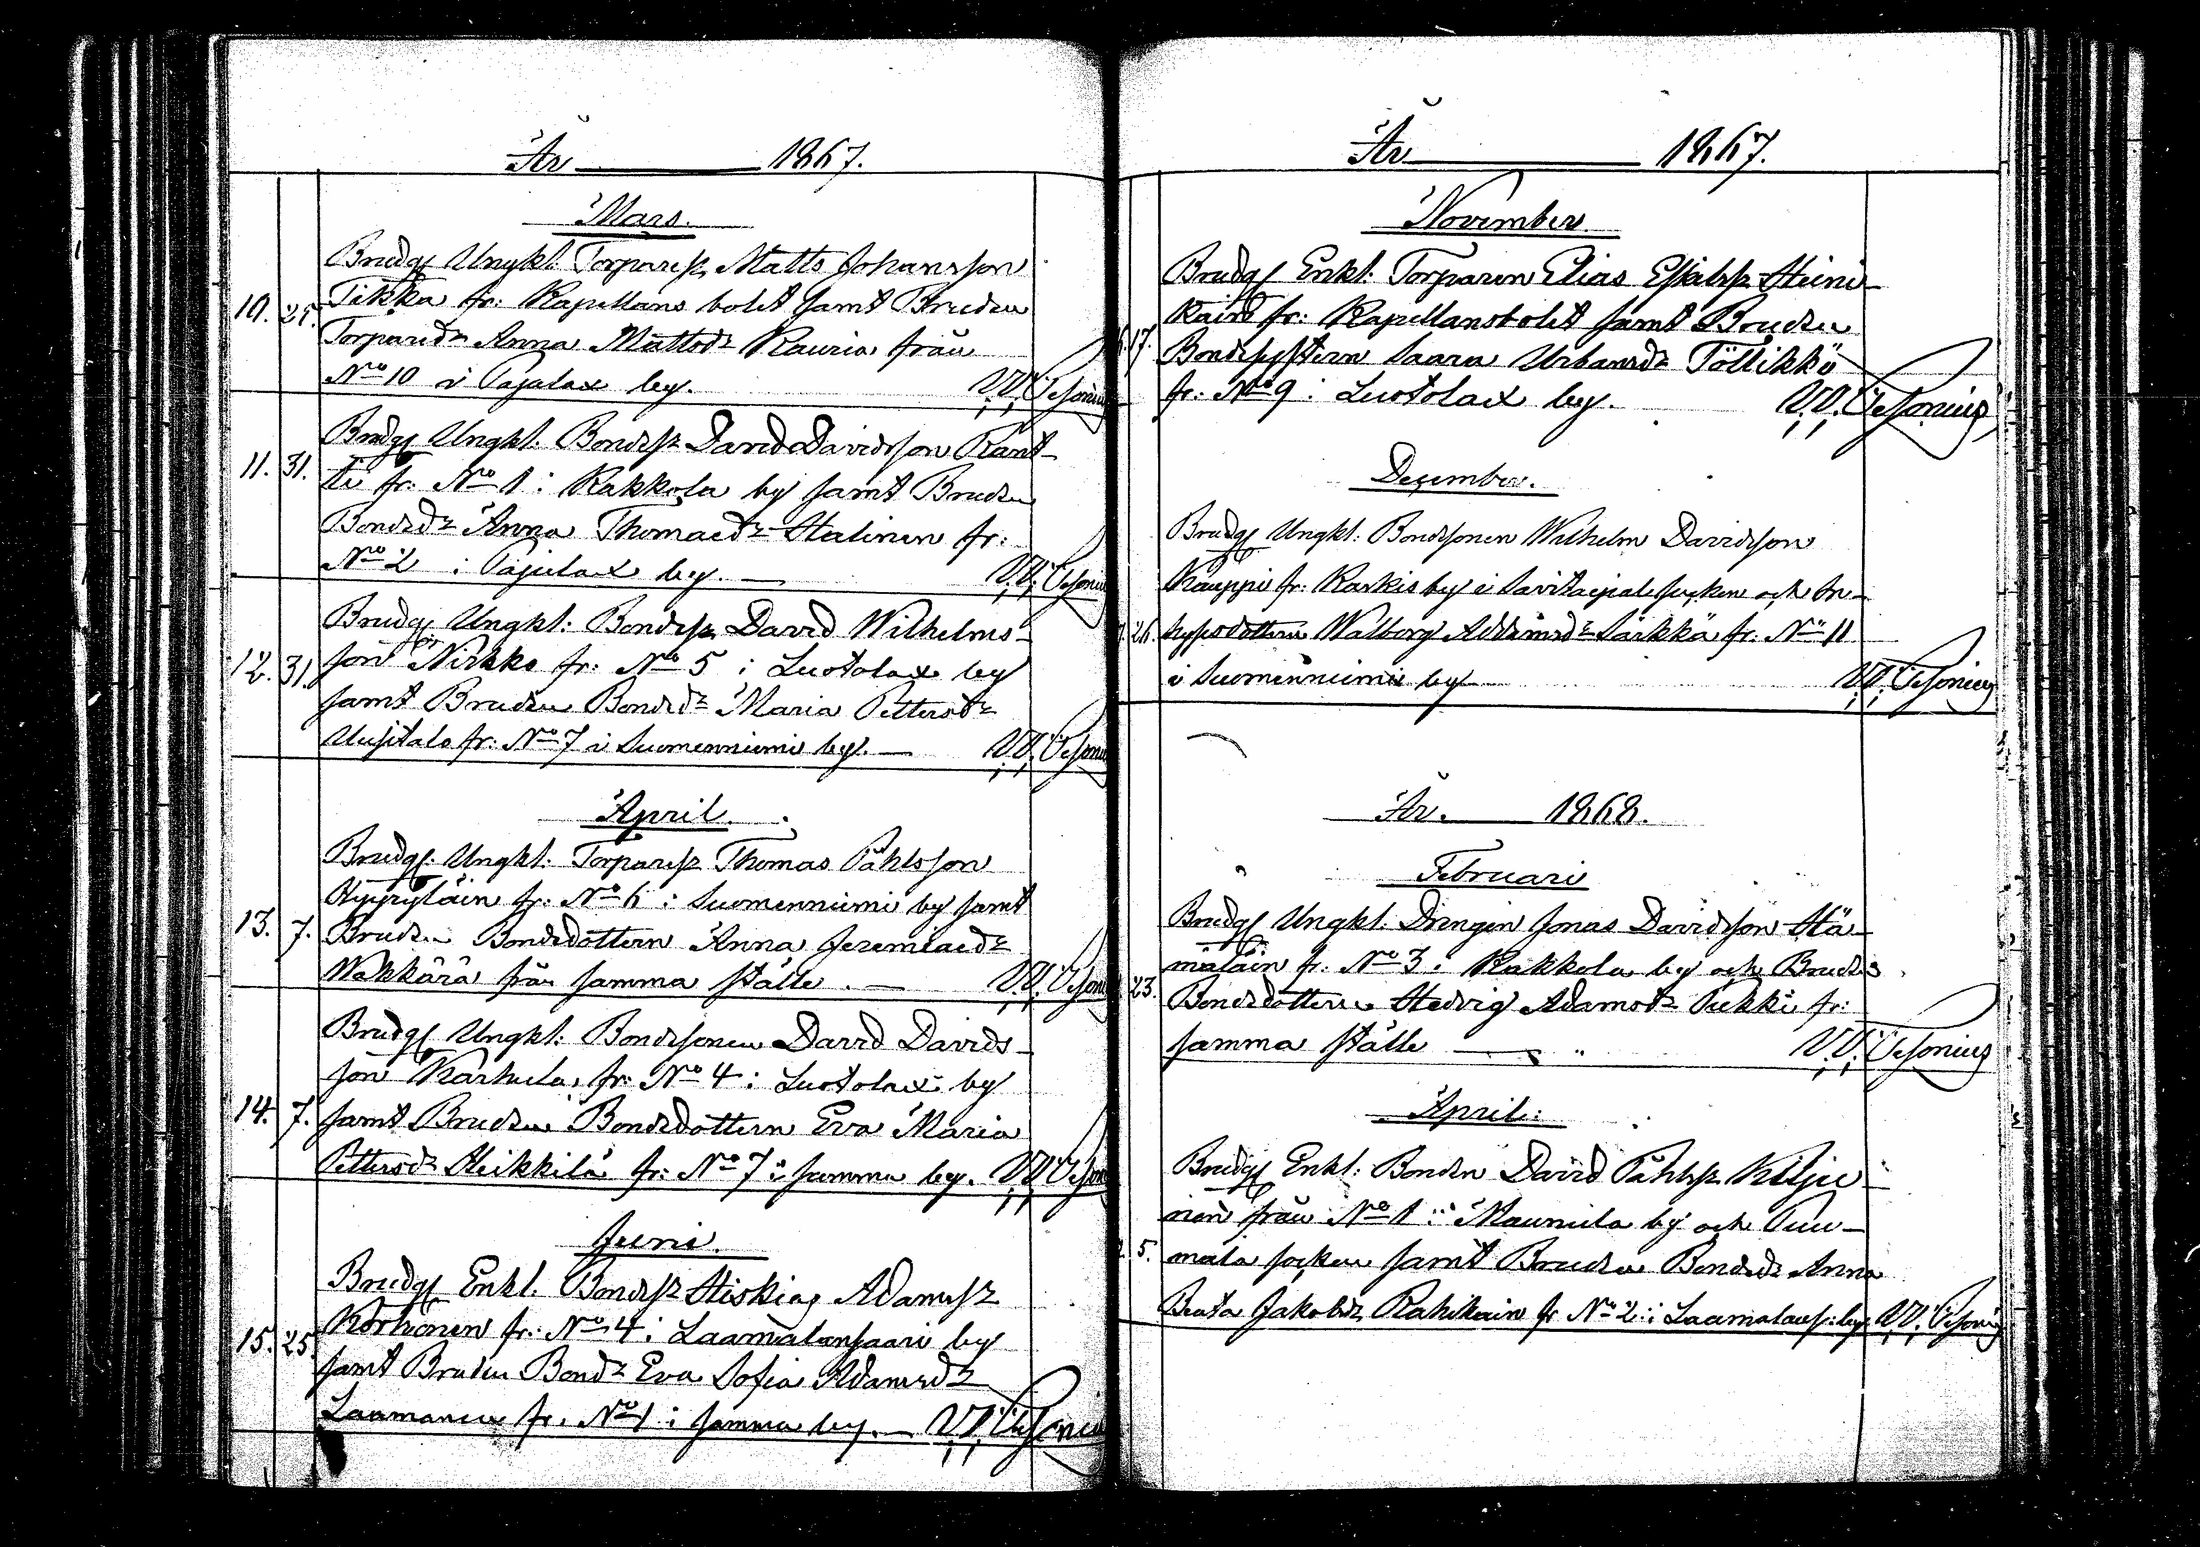 År 1867.
Mars.
Brudg Ungkl. Torparesz. Matts Johansson
10. 21. Tikka fr: Kapellans bolet samt Bruden
Torpared:r Anna Mattsd:r Kauria från
No 10 i Pajulax by. V.V. Tesonius
Brudg Ungkl. Bondesz David Davidsson Kant-
11. 31. ti fr: No 1 i Kakkola by samt Bruden
Bonded:r Anna Thomaed:r Halinen fr:
No 2 i Pajulax by. — V.V. Tesonius
Brudg Ungkl: Bondesz David Wilhelms-
12. 31. son Nirkko fr: No 5 i Luotolax by
samt Bruden Bonded:r Maria Pettersd:r
Uusitalo fr: No 7 i Suomenniemi by. — V.V. Tesonius
April.
Brudg. Ungkl. Torparesz Thomas Påhlsson
Hyyryläin fr: No 6 i Suomenniemi by samt
13. 7. Bruden Bondedottern Anna Jeremiaed:r
Wakkärä från samma ställe. — V.V. Tesonius
Brudg Ungkl: Bondesonen David Davids-
son Karhula, fr: No 4 i Luotolax by
14. 7. samt Bruden Bondedottern Eva Maria
Pettersd:r Heikkilä fr: No 7 i samma by. V.V. Tesonius
Juni.
Brudg Enkl. Bondesz Hiskias Adamsz
15. 25. Korhonen fr: No 4 i Laamalansaari by
samt Bruden Bond:r Eva Sofia Adamsd:r
Laamanen fr. No 1 i samma by. — V.V. Tesonius
År 1867.
November.
Brudg Enkl. Torparen Elias Esaiasz Heini-
kain fr: Kapellansbolet samt Bruden
17. Bondesystern Saara Urbansd:r Töllikkö
fr: No 9 i Luotolax by. V.V. Tesonius
December.
Brudg Ungkl: Bondesonen Wilhelm Davidsson
Kauppi fr: Karkis by i Savitaipale socken och In-
26. hysesdottern Walborg Adamsd:r Särkkä fr. No 11
i Suomenniemi by V.V. Tesonius
År. 1868.
Februari
Brudg Ungkl. Drengen Jonas Davidsson Hä-
mäläin fr. No 3 i Kakkola by och Bruden
23. Bondedottern Hedvig Adamsd:r Pukki fr:
samma ställe — V.V. Tesonius
April:
Brudg Enkl: Bonden David Påhlsz Kitju-
nen från No 1 i Maunula by och Puu-
5. mala socken samt Bruden Bonded:r Anna
Beata Jakobsd:r Rahikain fr No 2 i Laamalans: by. V.V. Tesonius